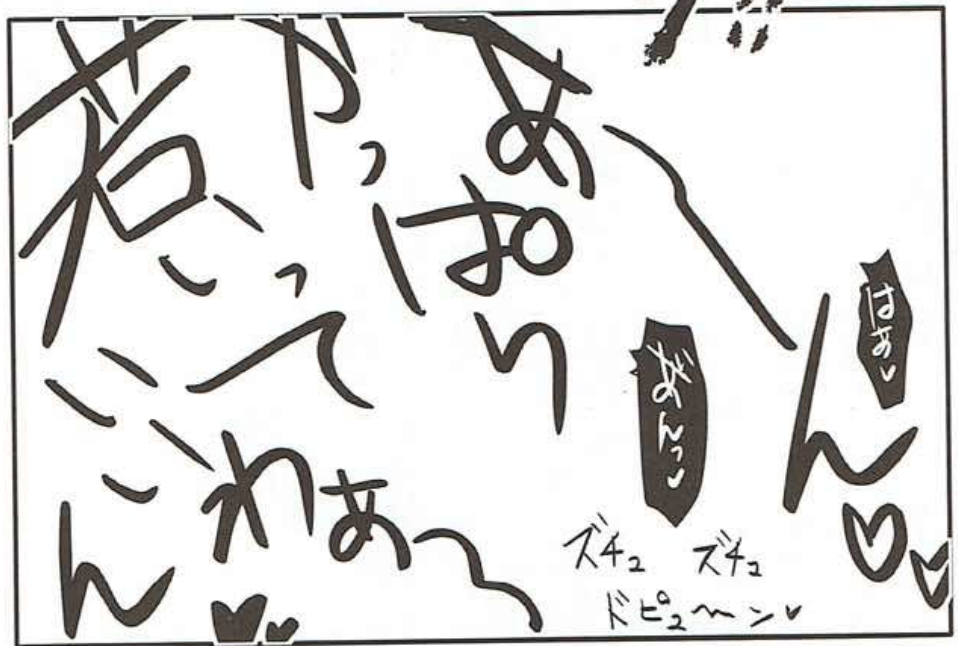 はあ♥
あ〜ん♡♡
あ゛んっ♥
やっぱり
若いって
いいわぁ〜
ん♥♥
ズチュ ズチュ
ドピュ〜ン♥